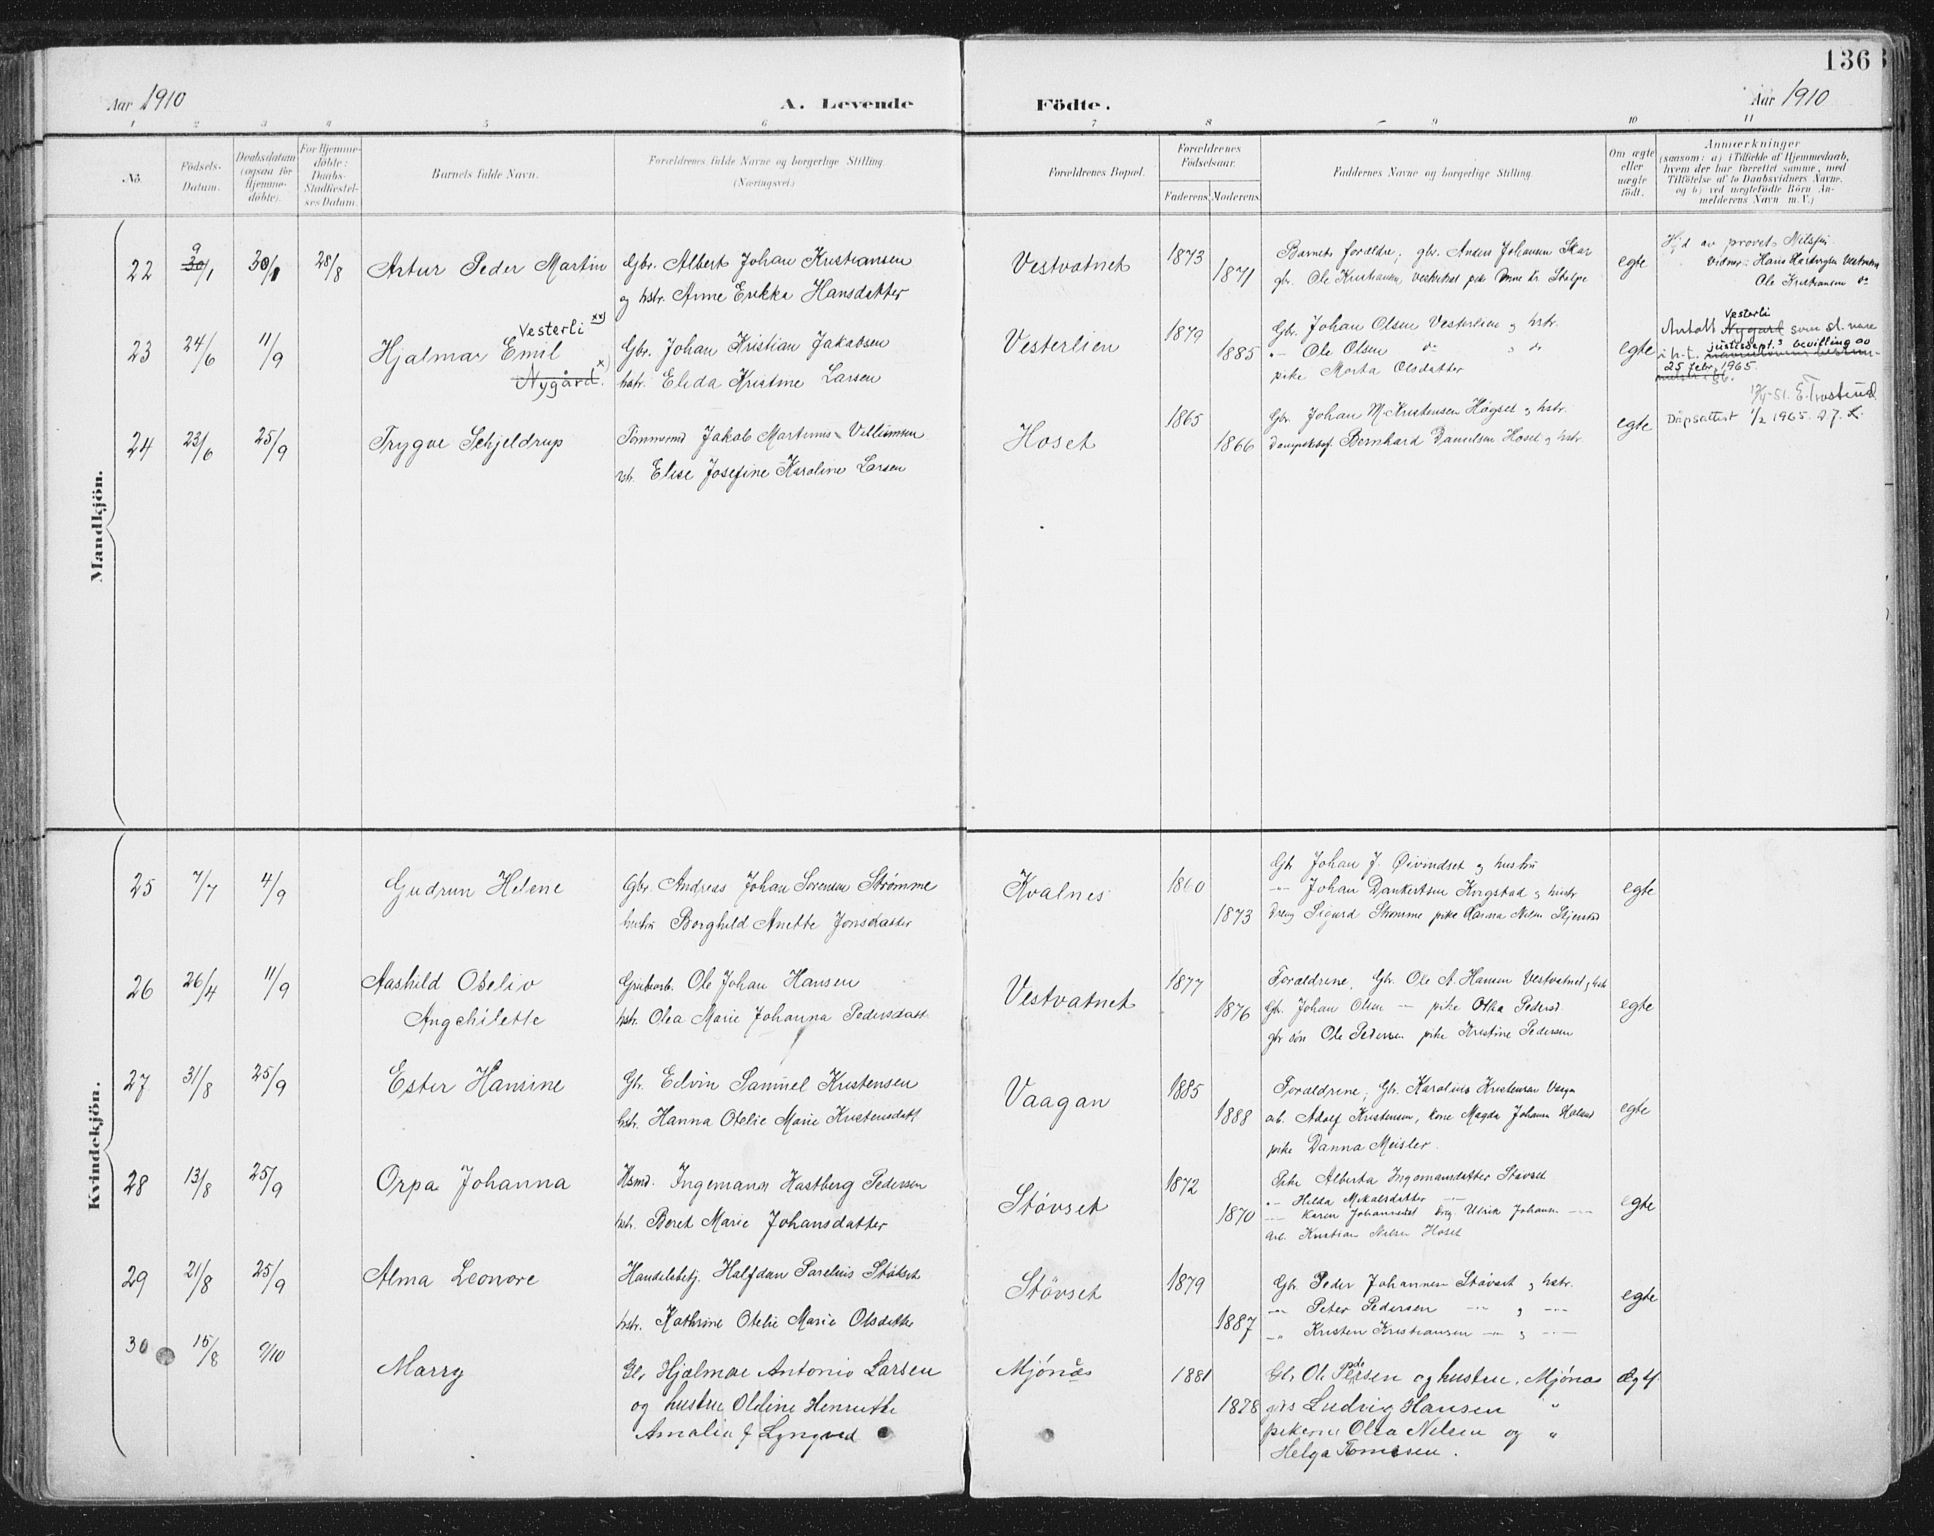 136
Aar 1910
A. Levende
Födte.
Aar 1910
1 2 3 4 5 6 7 8 9 10 11
No.
Födsels-Datum.
Daabsdatum (ogsaa for Hjemme-döbte).
For Hjemme-döbte: Daabs-Stadfæstel-ses Datum.
Barnets fulde Navn.
Forældrenes fulde Navne og borgerlige Stilling. (Næringsvei.)
Forældrenes Bopæl.
Forældrenes Födselsaar.
Faderens. Moderens.
Faddernes Navne og borgerlige Stilling.
Om ægte eller uægte födt.
Anmærkninger
(saasom: a) i Tilfælde af Hjemmedaab,
hvem der har forrettet samme, med
Tilföielse af to Daabsvidners Navne.
og b) ved uægtefödte Börn An-
melderens Navn m. V.)
Mandkjön.
22 9 30/1 28/8 Artur Peder Martin
Gbr. Albert Johan Kristiansen
og hstr. Anne Erikka Hansdatter
Vestvatnet 1873 1871
Barnets forældre, gbr. Anders Johansen Skar
gbr. Ole Kristiansen, Vestvatnet pike
egte
Hjd av provst Nilssen
Vidner: Hans Hartvigsen Vestvatnet
Ole Kristiansen do
23 24/6 11/9 Hjalmar Emil Vesterli xx)
Nygård. x)
Gbr. Johan Kristian Jakobsen
hstr. Elida Kristine Larsen
Vesterlien 1879 1885
Gbr. Johan Olsen Vesterlien og hstr.
-"- Ole Olsen do " do
pike Marta Olsdatter
egte
Vesterli
Antatt Nygard som sl. navn
justisdept.s bevilling av
25 febr. 1965.
24 23/6 25/9 Trygve Schjeldrup
Tömmermd Jakob Martinus Villumsen
hstr. Elise Josefine Karoline Larsen
Hoset 1865 1866
Gbr. Johan M. Kristensen Høgset og hstr.
Bernhard Danielsen Hoset og hstr.
egte
Dåpsattest 1/2 1965.
Kvindekjön.
25 7/7 4/9 Gudrun Helene
Gbr. Andreas Johan Sörensen Strømme
hustru Borghild Anette Jonsdatter
Kvalnes 1860 1873
Gbr Johan J. Øivindset og hustru
-"- Johan Dankertsen Kvgstad og hustr
Dreng Sigurd Strømme pike
egte
26 26/4 11/9 Aashild Oteliv
Angehilette
Grubearb. Ole Johan Hansen
hstr. Olea Marie Johanna Pedersdatt
Vestvatnet 1877 1876
Forældrene, Gbr. Ole A. Hansen Vestvatnet, hstr
Gbr. Johan Olsen — pike Olka Pedersd
gbr søn Ole Pedersen pike Kristine Pedersen
egte
27 31/8 25/9 Ester Hansine
Gbr. Edvin Samuel Kristensen
hstr. Hanna Otelie Marie Kristensdatt
Vaagan 1885 1888
Forældrene, Gbr. Karolius Kristensen Vaagan
arb. Adolf Kristensen, kone Magda Johansen
pike Danna Meisler.
egte
28 13/8 25/9 Orpa Johanna
Hsmd. Ingemann Hastberg Pedersen
hstr. Beret Marie Johansdatter
Støvset 1872 1870
Pike Alberta Ingemansdatter Støvset
-"- Hilda Mikalsdatter -"-
-"- Karen Johannesd. Drg Ulrik Johansen -"-
Arb. Kristian Nilsen Hoset
egte
29 21/8 25/9 Alma Leonore
Handelsbetj. Halfdan Parelius Støvset
hstr. Kathrine Otelie Marie Olsdatter
Støvset 1879 1887
Gbr. Peder Johannesen Støvset og hstr.
-"- Peter Pedersen -"- " -"-
-"- Kristen Kristiansen -"- " -"-
egte
30 15/8 9/10 Marry
Gbr Hjalmar Antonio Larsen
og hustru Oldine Henrutte
Amalia f Lyngved
Mjønæs 1881 1878
Gbr. Ole Pedersen og hustru. Mjønes
gbrs Ludvig Hansen "
pikerne Olea Nilsen og "
Helga Tomasen.
Ægt